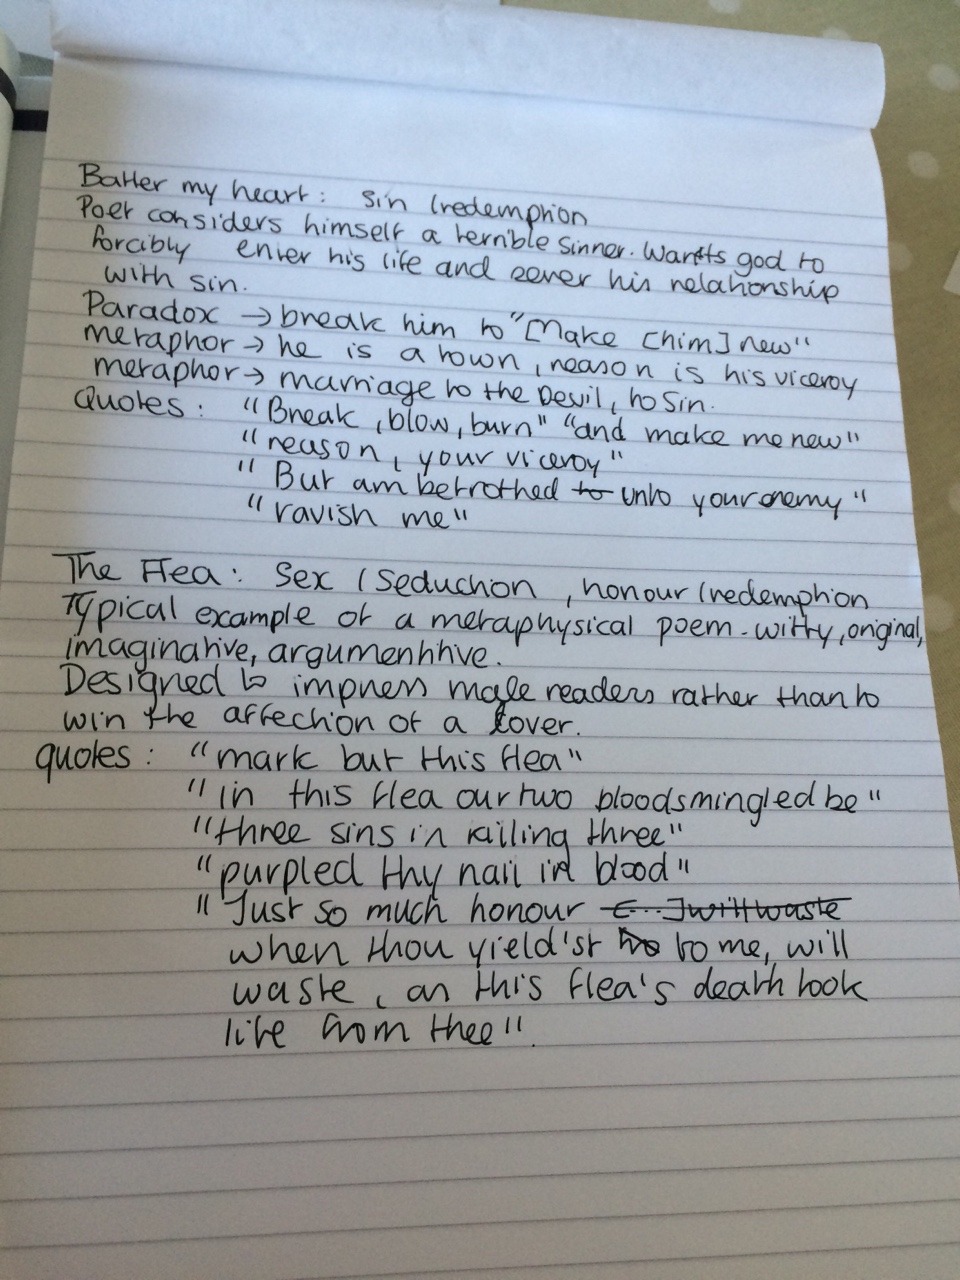 Batter my heart: Sin / redemption
Poet considers himself a terrible sinner. Wants god to
forcibly enter his life and sever his relationship
with sin.
Paradox → break him to "[Make [him] new"
metaphor → he is a town, reason is his viceroy
metaphor → marriage to the Devil, to Sin.
Quotes: "Break, blow, burn" "and make me new"
"reason, your viceroy"
"But am betrothed to unto your enemy"
"ravish me"
The Flea: Sex / Seduction, honour / redemption
Typical example of a metaphysical poem - witty, original,
imaginative, argumentitive.
Designed to impress male readers rather than to
win the affection of a lover.
quotes: "mark but this flea"
"in this flea our two bloods mingled be"
"three sins in killing three"
"purpled thy nail in blood"
"Just so much honour [...] will waste
when thou yield'st to me, will
waste, as this flea's death took
life from thee".